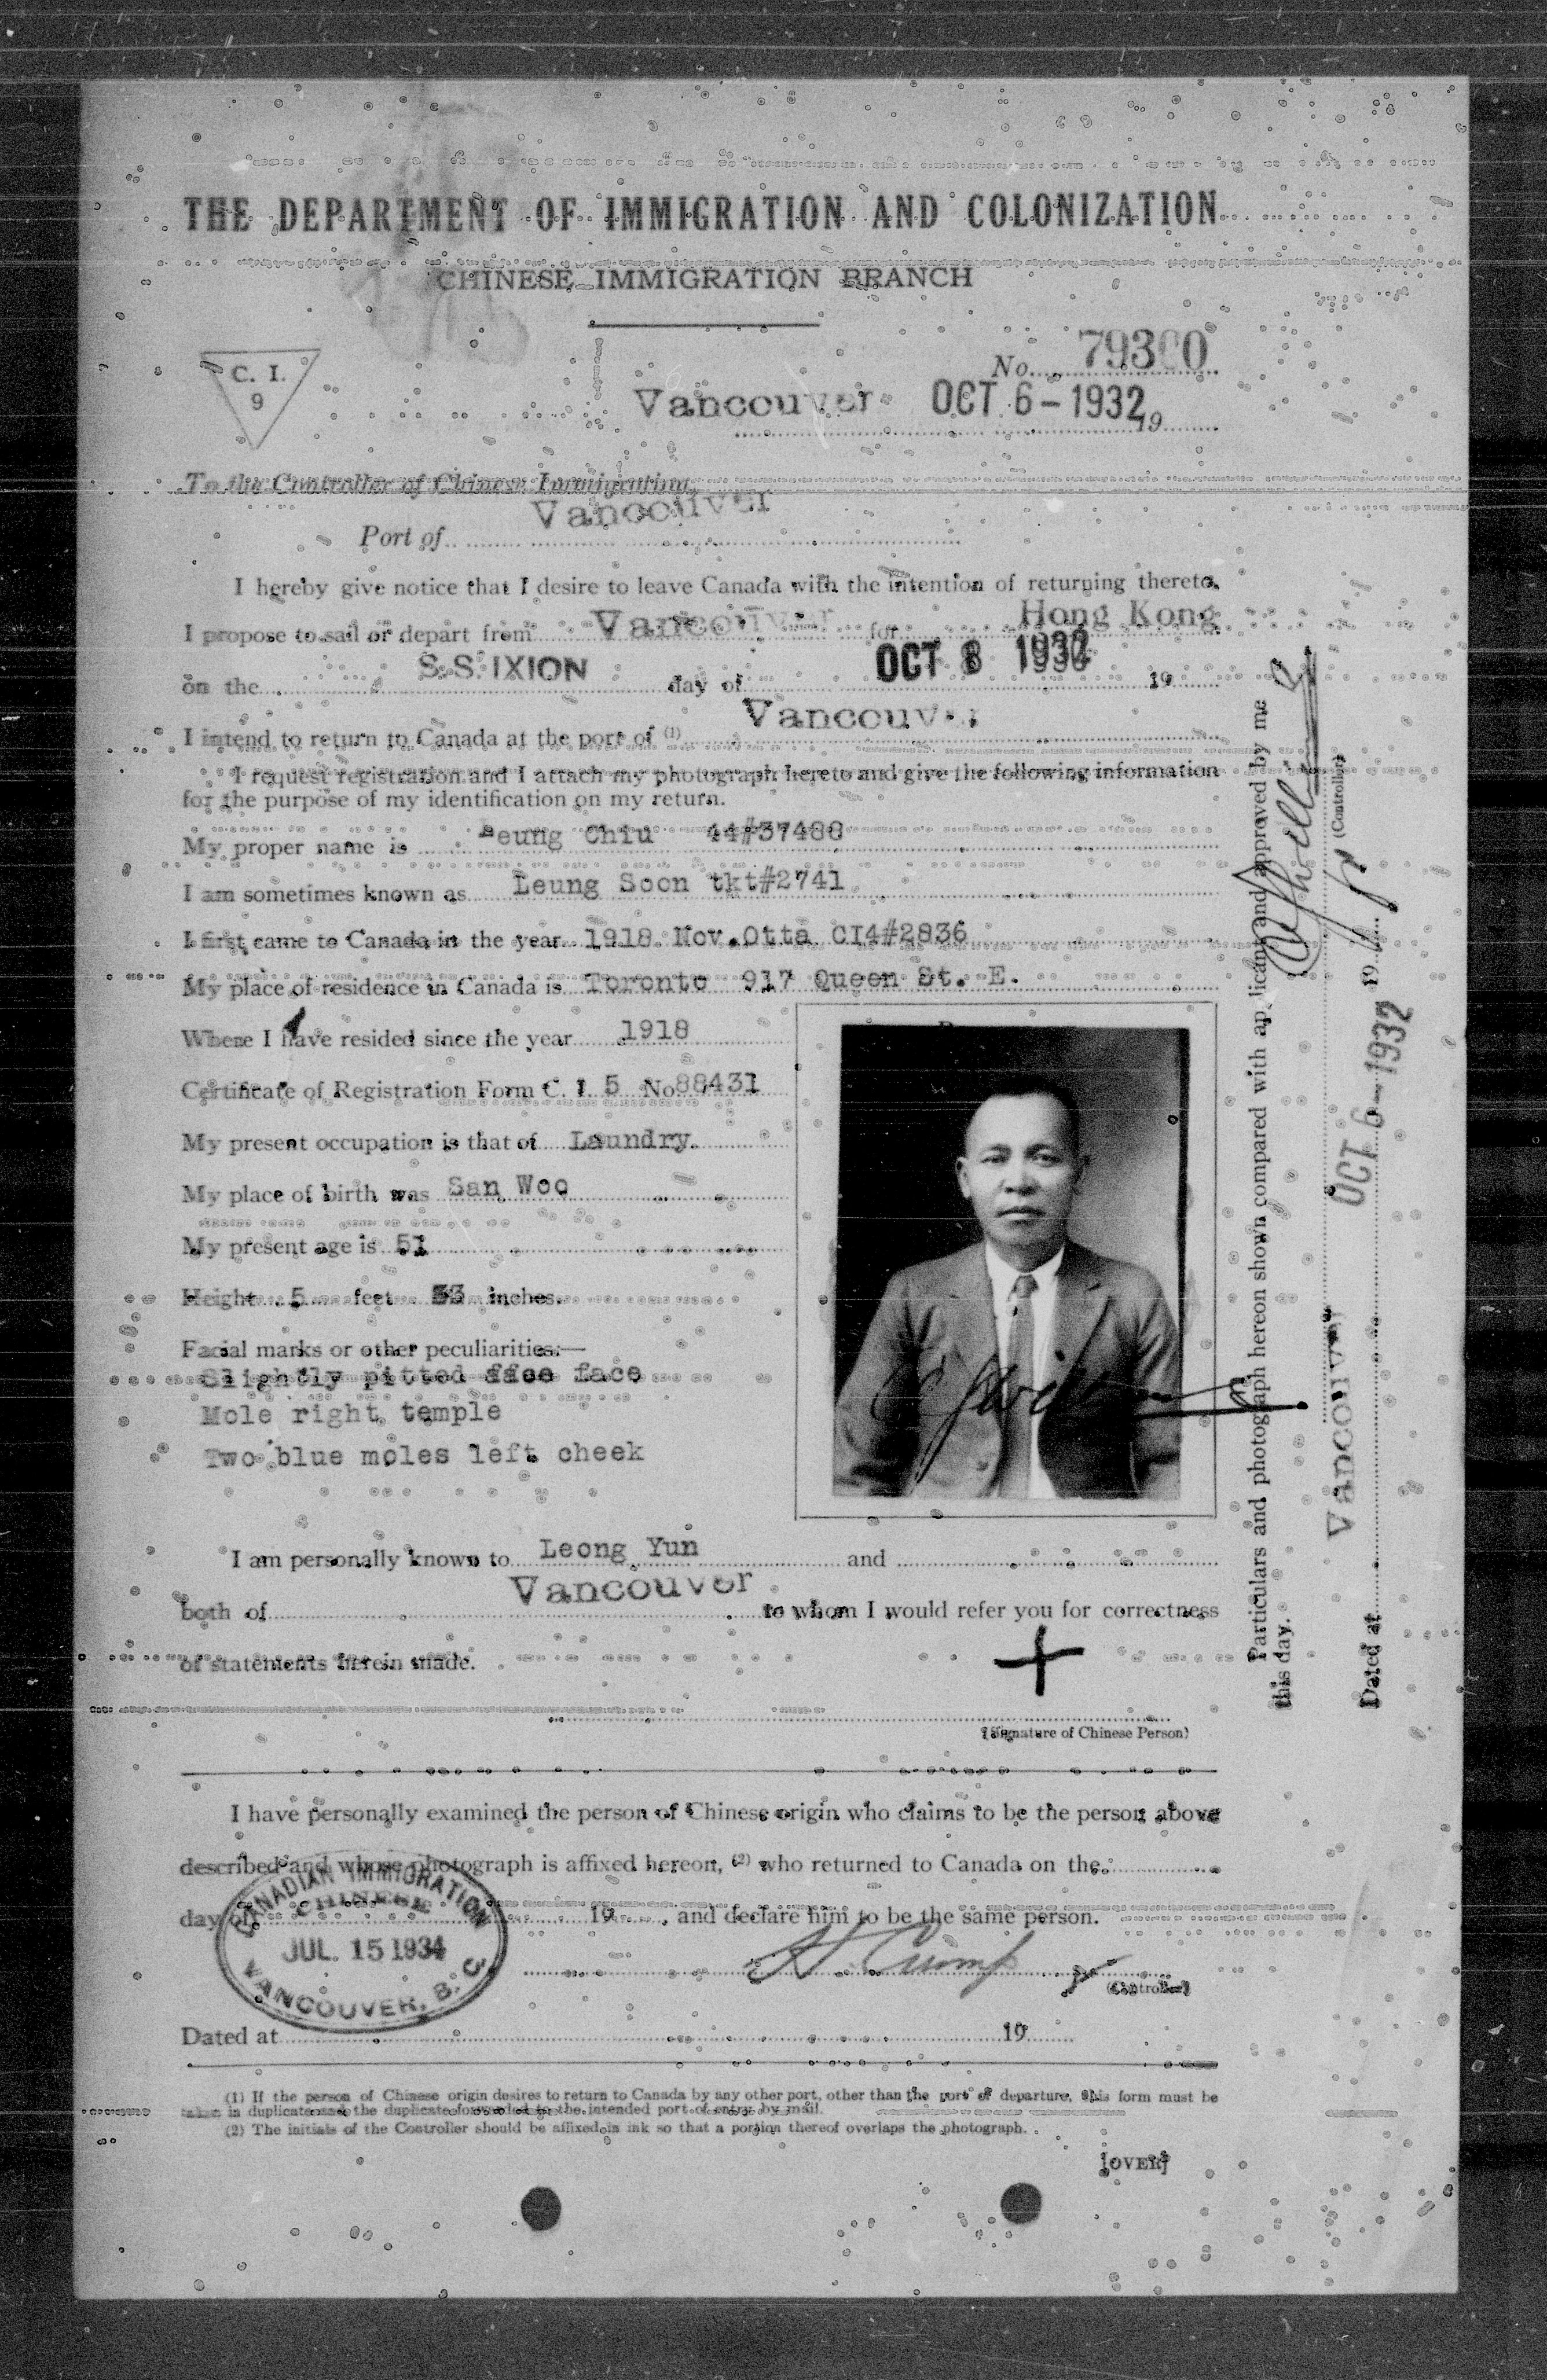 THE DEPARTMENT OF IMMIGRATION AND COLONIZATION
CHINESE IMMIGRATION BRANCH
C. I.
9
No. 79300
Vancouver OCT 6-1932 19
To the Controller of Chinese Immigration,
Vancouver
Port of
I hereby give notice that I desire to leave Canada with the intention of returning thereto.
I propose to sail or depart from Vancouver for Hong Kong
on the S.S. IXION day of OCT 8 1932 19
I intend to return to Canada at the port of (1) Vancouver
I request registration and I attach my photograph hereto and give the following information
for the purpose of my identification on my return.
My proper name is Leung Chiu 44#37488
I am sometimes known as Leung Soon tkt#2741
I first came to Canada in the year 1918 Nov. Otta CI4#2836
My place of residence in Canada is Toronto 917 Queen St. E.
Where I have resided since the year 1918
Certificate of Registration Form C. I. 5 No 88431
My present occupation is that of Laundry.
My place of birth was San Woo
My present age is 51
Height 5 feet inches.
Facial marks or other peculiarities:—
Slightly pitted face
Mole right temple
Two blue moles left cheek
I am personally known to Leong Yun and
both of Vancouver to whom I would refer you for correctness
of statements herein made.
+
(Signature of Chinese Person)
I have personally examined the person of Chinese origin who claims to be the person above
described and whose photograph is affixed hereon, (2) who returned to Canada on the
day of 19 , and declare him to be the same person.
CANADIAN IMMIGRATION
CHINESE
JUL. 15 1934
VANCOUVER, B. C.
(Controller)
Dated at 19
(1) If the person of Chinese origin desires to return to Canada by any other port, other than the port of departure, this form must be
taken in duplicate and the duplicate forwarded to the intended port of entry by mail.
(2) The initials of the Controller should be affixed in ink so that a portion thereof overlaps the photograph.
[OVER]
Particulars and photograph hereon shown compared with applicant and approved by me
this day.
(Controller)
Vancouver OCT 6-1932
Dated at 19